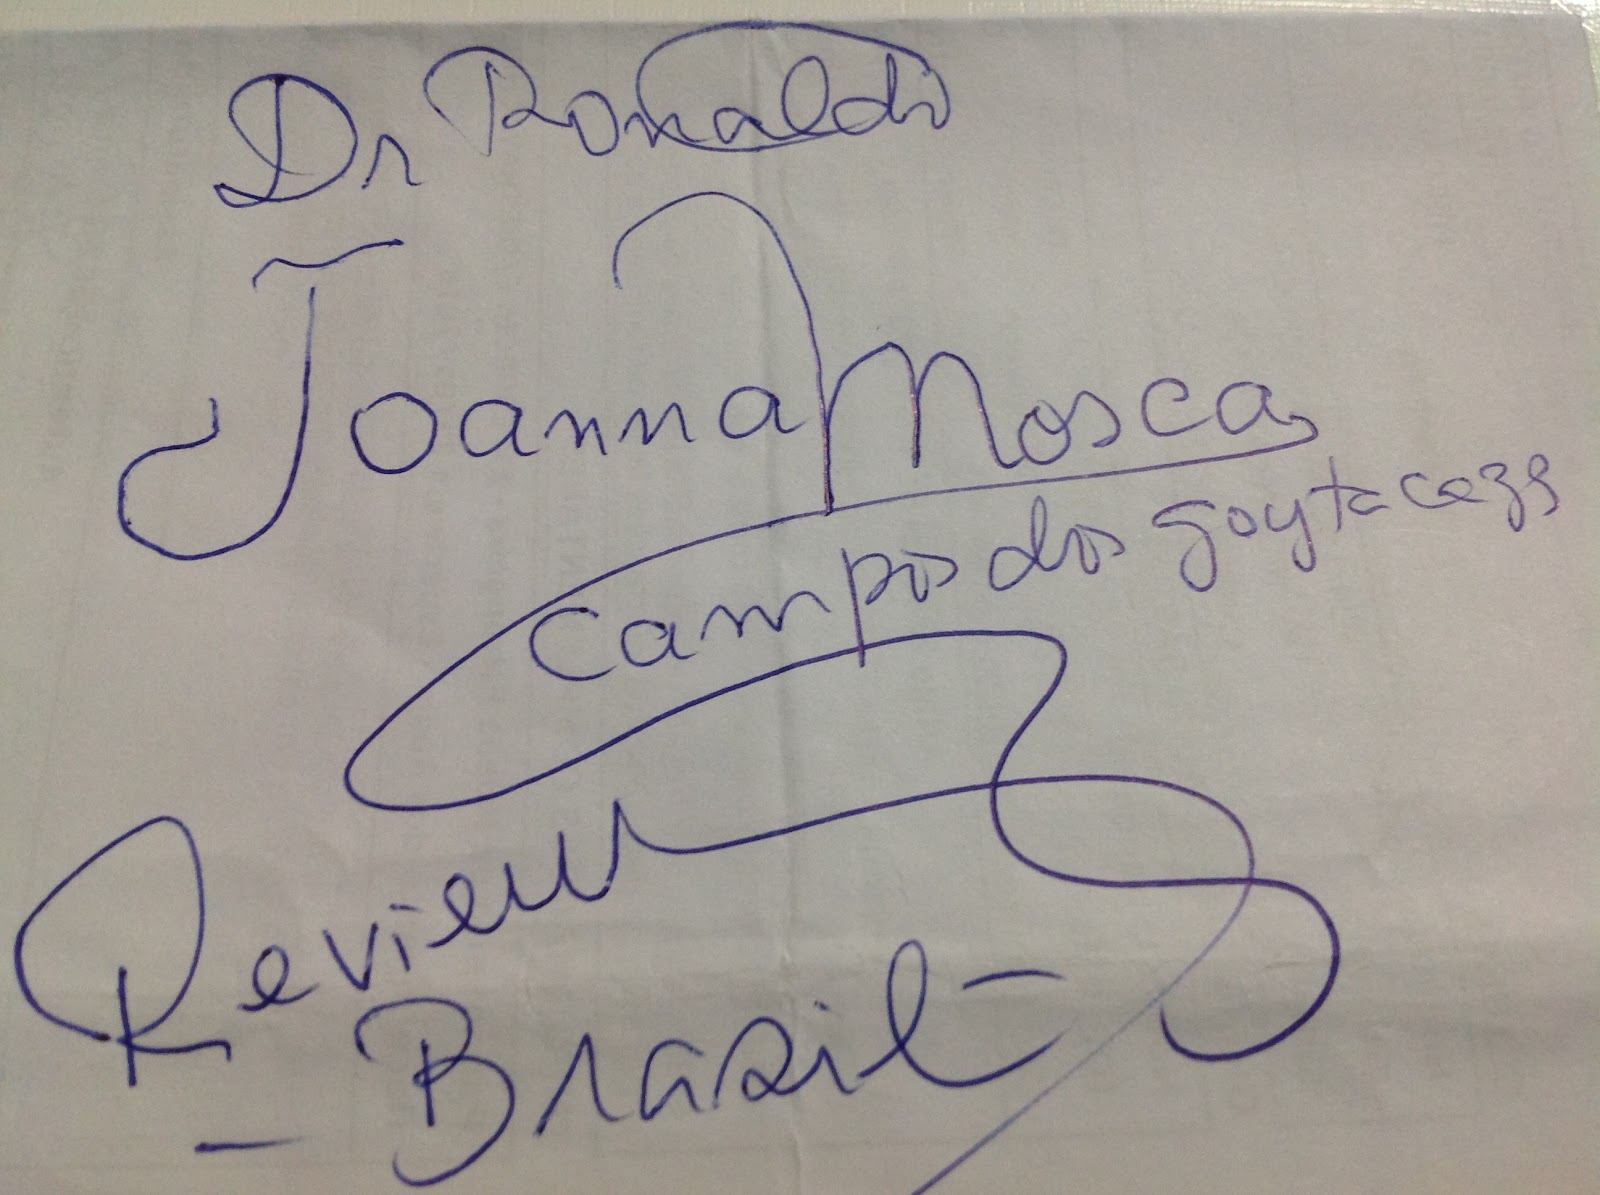 Dr Ronaldo
Joanna Mosca
campos dos goytacazs
Review
- Brasil -